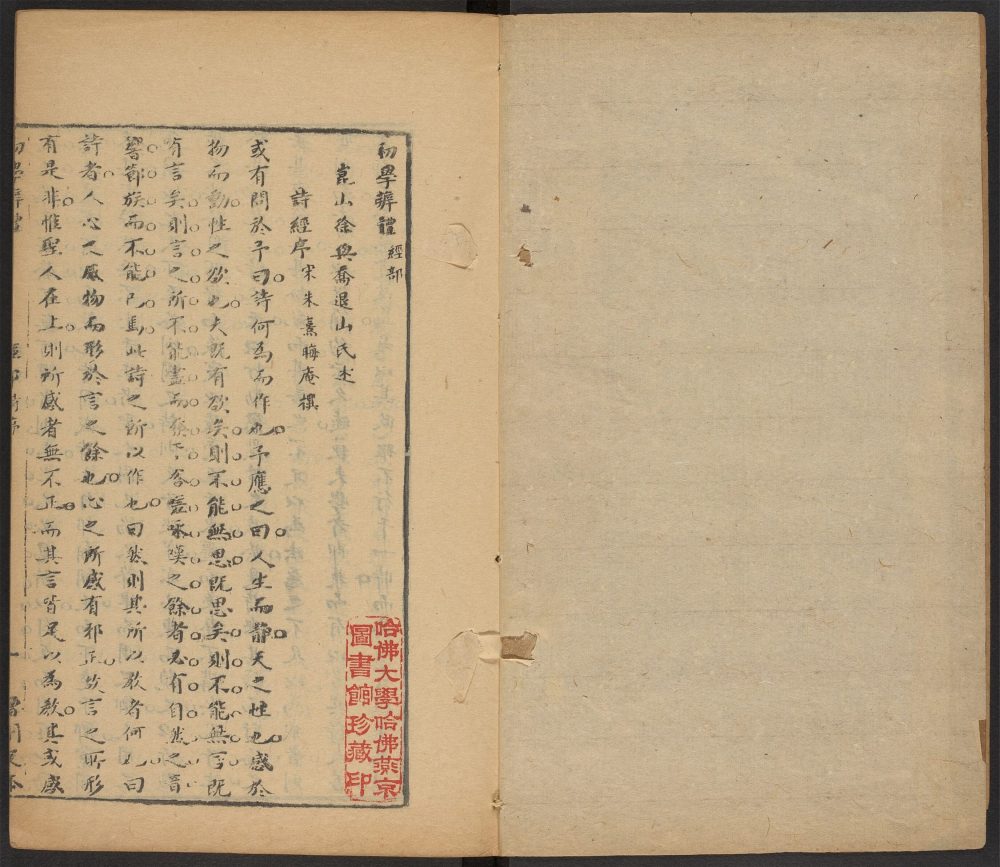 初學辨體 經部
崑山徐與喬退山氏述
詩經序 宋朱熹晦庵撰
或有問於予曰詩何為而作也予應之曰人生而靜天之性也感於
物而動性之欲也夫既有欲矣則不能無思既思矣則不能無言既
有言矣則言之所不能盡而發於咨嗟咏嘆之餘者必有自然之音
響節族而不能已焉此詩之所以作也曰然則其所以教者何也曰
詩者人心之感物而形於言之餘也心之所感有邪正故言之所形
有是非惟聖人在上則所感者無不正而其言皆足以為教其或感
初學辨體 經部詩序 一
哈佛大學哈佛燕京
圖書館珍藏印